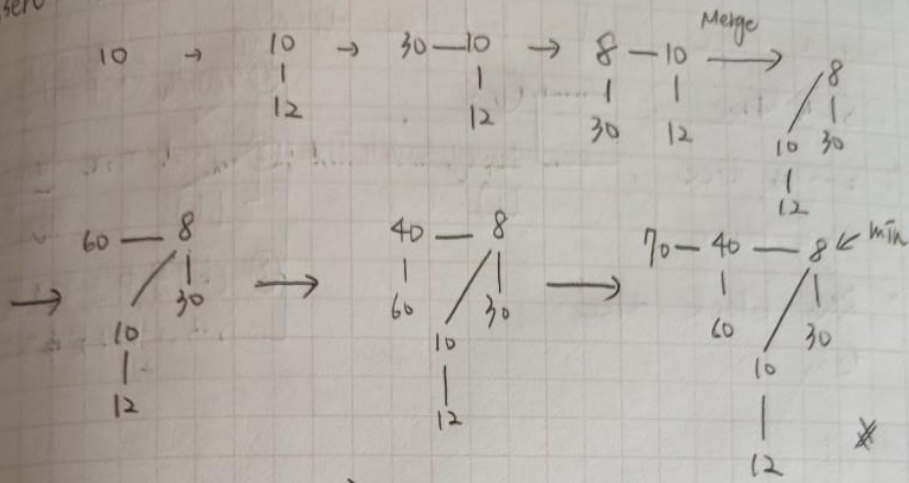 10 → 10 → 30 — 10 → 8 — 10 Merge → 8
12 12 30 12 10 30
12
→ 60 — 8 → 40 — 8 → 70 — 40 — 8 ← min
30 60 30 60 30
10 10 10
12 12 12